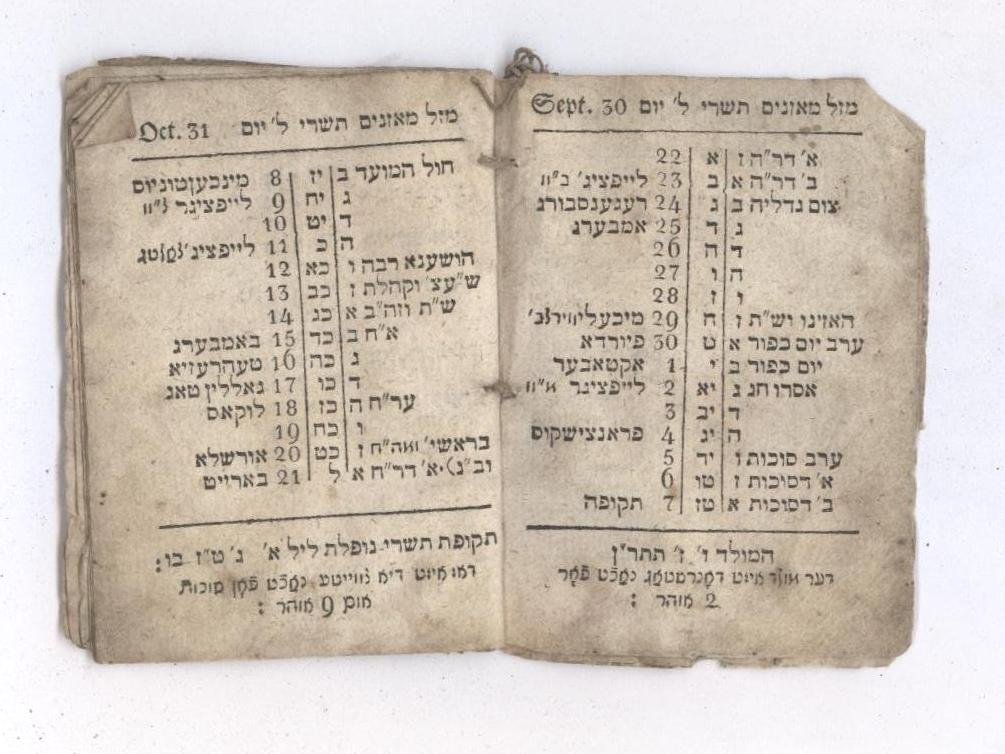 מזל מאזנים תשרי ל׳ יום Sept. 30
א׳ דר״ה ז א 22
ב׳ דר״ה א ב 23 לייפציג׳
צום גדליה ב ג 24 רעגענסבורג
ג ד 25 אמבערג
ד ה 26
ה ו 27
ו ז 28
האזינו וש״ת ז ח 29
ערב יום כפור א ט 30 פיורדא
יום כפור ב י 1 אקטאבער
אסרו חג ג יא 2 לייפציגר
ד יב 3
ה יג 4 פראנצישקוס
ערב סוכות ו יד 5
א׳ דסוכות ז טו 6
ב׳ דסוכות א טז 7 תקופה
המולד ו׳ ז׳ תתר״ן
דער מולד איזט דאָנרסטאַג נאַכט פאָר
2 אוהר :
מזל מאזנים תשרי ל׳ יום Oct. 31
חול המועד ב יז 8
ג יח 9 לייפציגר
ד יט 10
ה כ 11 לייפציג׳
הושענא רבה ו כא 12
ש״עצ׳ וקהלת ז כב 13
ש״ת וזה״ב א כג 14
א״ח ב כד 15 באמבערג
ג כה 16 טעהרעזיא
ד כו 17 גאללין טאג
ער״ח ה כז 18 לוקאס
ו כח 19
בראשי׳ ומה״ח ז כט 20 אורשלא
א׳ דר״ח א ל 21
תקופת תשרי נופלת ליל א׳ ג׳ ט״ז בו:
דאז איזט דיא צווייטע נאַכט פאָן סוכות
אום 9 אוהר :